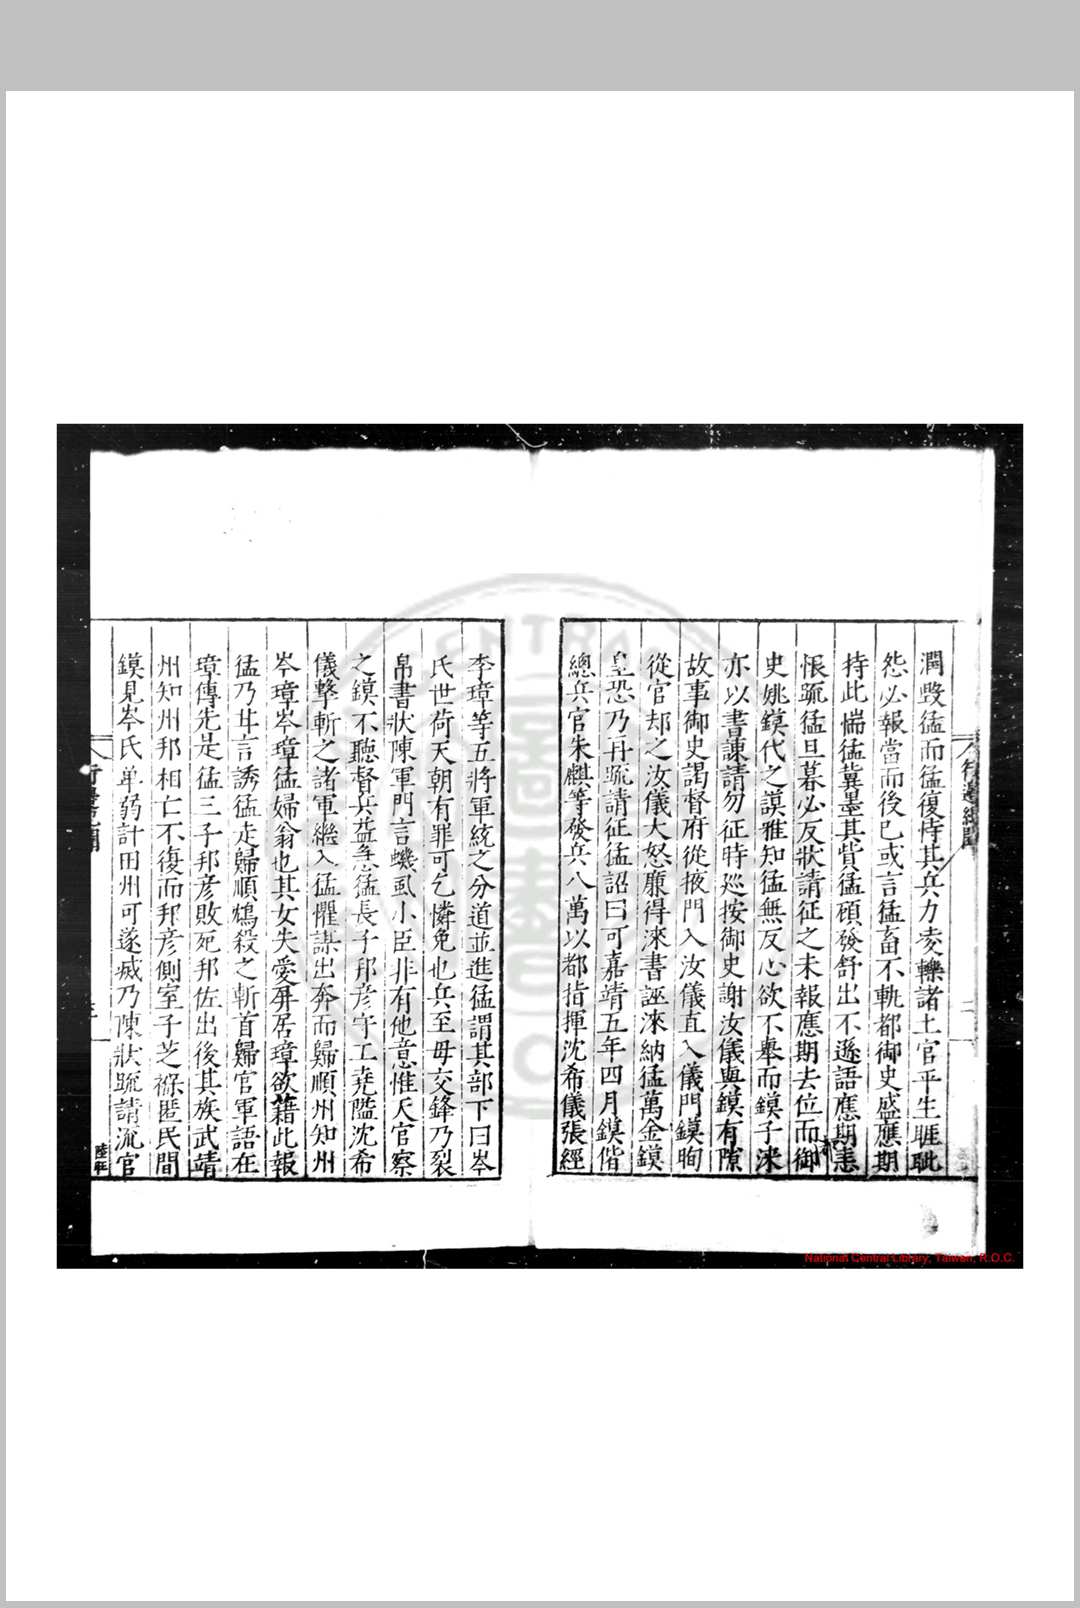 澗毀猛而猛復恃其兵力凌轢諸土官平生睚眦
怨必報當而後已或言猛畜不軌都御史盛應期
持此惴猛冀墨其貲猛頑發舒出不遜語應期恚
恨疏猛旦暮必反狀請征之未報應期去位而御
史姚鏌代之謨雅知猛無反心欲不舉而鏌子淶
亦以書諫請勿征時巡按御史謝汝儀與鏌有隙
故事御史謁督府從掖門入汝儀直入儀門鏌眴
從官却之汝儀大怒廉得淶書誣淶納猛萬金鏌
皇恐乃再疏請征猛詔曰可嘉靖五年四月鏌偕
總兵官朱麒等發兵八萬以都指揮沈希儀張經
李璋等五將軍統之分道並進猛謂其部下曰岑
氏世荷天朝有罪可乞憐免也兵至毋交鋒乃裂
帛書狀陳軍門言蟣虱小臣非有他意惟天官察
之鏌不聽督兵益急猛長子邦彥守工堯隘沈希
儀擊斬之諸軍繼入猛懼謀出奔而歸順州知州
岑璋岑璋猛婦翁也其女失愛屏居璋欲藉此報
猛乃甘言誘猛走歸順鴆殺之斬首歸官軍語在
璋傳先是猛三子邦彥敗死邦佐出後其族武靖
州知州邦相亡不復而邦彥側室子芝褓匿民間
鏌見岑氏单弱計田州可遂滅乃陳狀疏請流官
行邊紀聞
二
陸平
National Central Library, Taiwan, R.O.C.